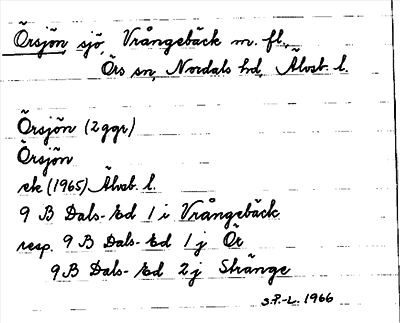 Örsjön, sjö, Vrångebäck m. fl.,
Örs sn, Nordals hd, Älvsb. l.
Örsjön (2 ggr)
Örsjön
ek (1965) Älvsb. l.
9 B Dals-Ed 1 i Vrångebäck
resp. 9 B Dals-Ed 1 j Ör
9 B Dals-Ed 2 j Stränge
S.P.-L. 1966